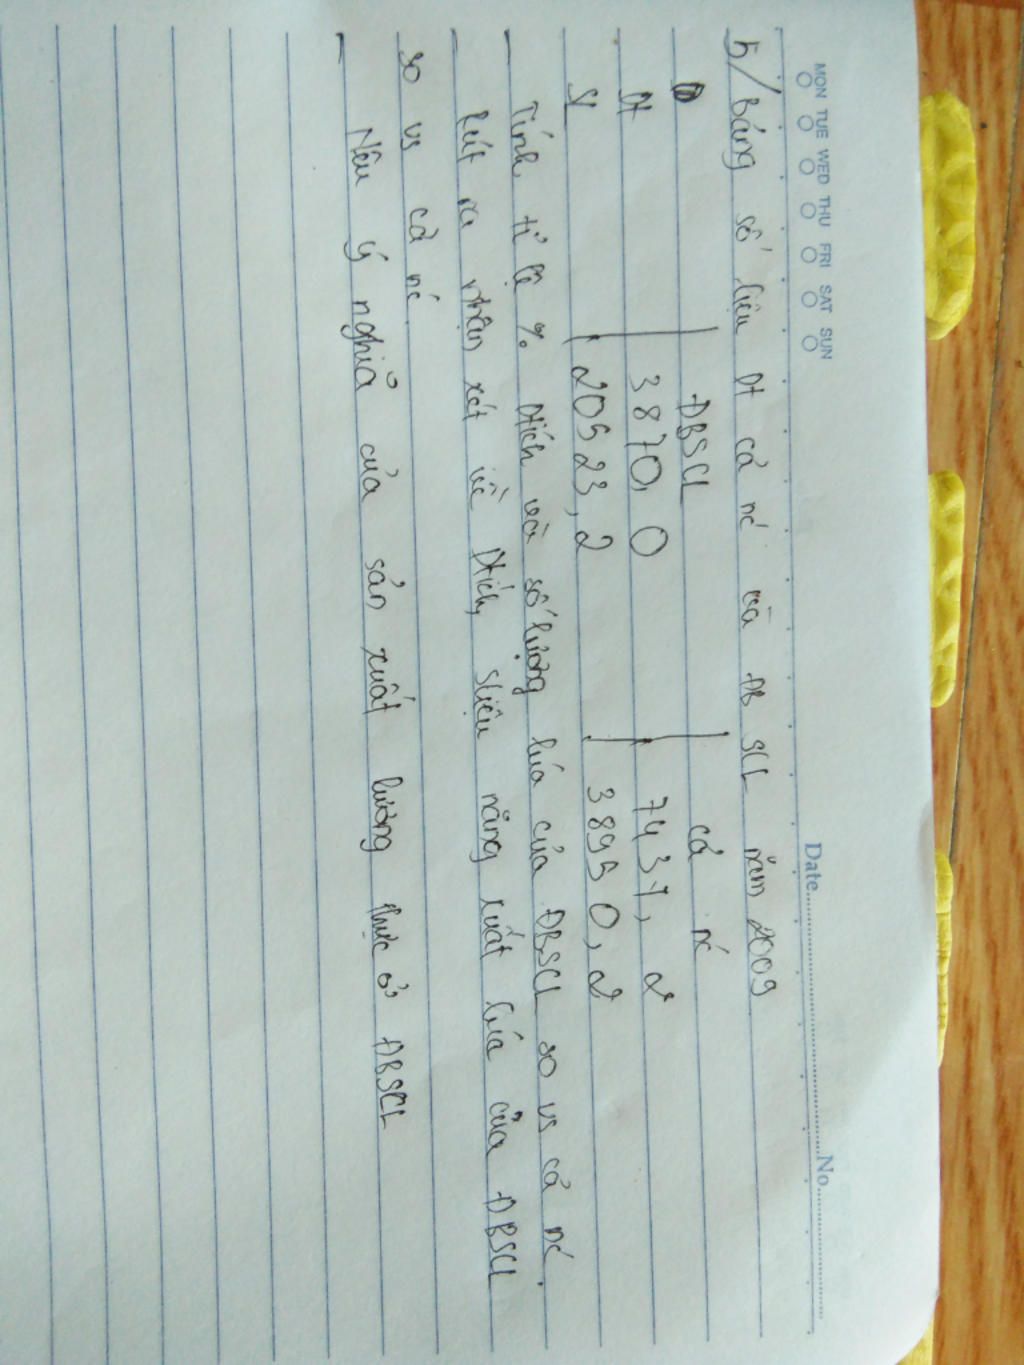 MON TUE WED THU FRI SAT SUN
Date No.
5/ Bảng số liệu Dt cả nc và ĐB SCL năm 2009
ĐBSCL cả nc
Dt 3870,0 7437,2
Sl 20523,2 38950,2
- Tính tỉ lệ % Dtích và số lượng lúa của ĐBSCL so vs cả nc.
- Rút ra nhận xét về Dtích, sliệu năng xuất lúa của ĐBSCL
so vs cả nc
- Nêu ý nghĩa của sản xuất lương thực ở ĐBSCL